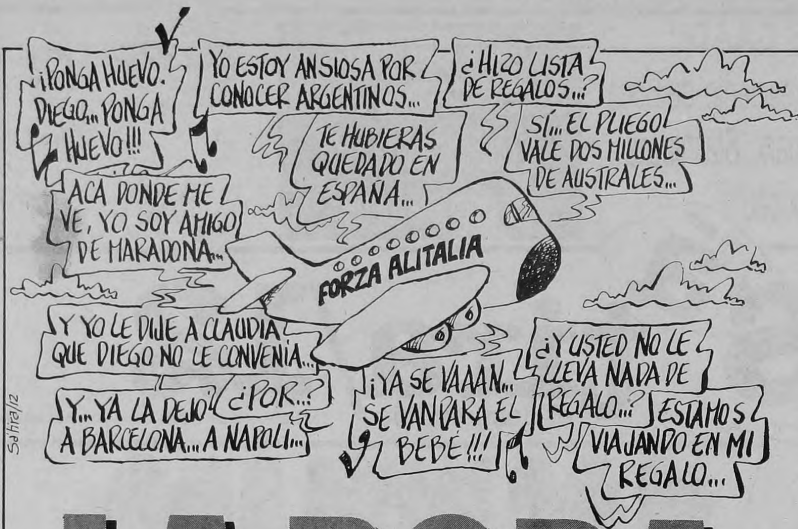 ¡PONGA HUEVO.
DIEGO... PONGA
HUEVO!!!
YO ESTOY ANSIOSA POR
CONOCER ARGENTINOS...
¿HIZO LISTA
DE REGALOS...?
TE HUBIERAS
QUEDADO EN
ESPAÑA...
SÍ... EL PLIEGO
VALE DOS MILLONES
DE AUSTRALES...
ACA DONDE ME
VE, YO SOY AMIGO
DE MARADONA...
FORZA ALITALIA
Y YO LE DIJE A CLAUDIA
QUE DIEGO NO LE CONVENIA...
¿POR...?
Y... YA LA DEJO
A BARCELONA... A NAPOLI...
¡YA SE VAAAN...
SE VAN PARA EL
BEBÉ!!!
¿Y USTED NO LE
LLEVA NADA DE
REGALO...?
ESTAMOS
VIAJANDO EN MI
REGALO...
Satira/12